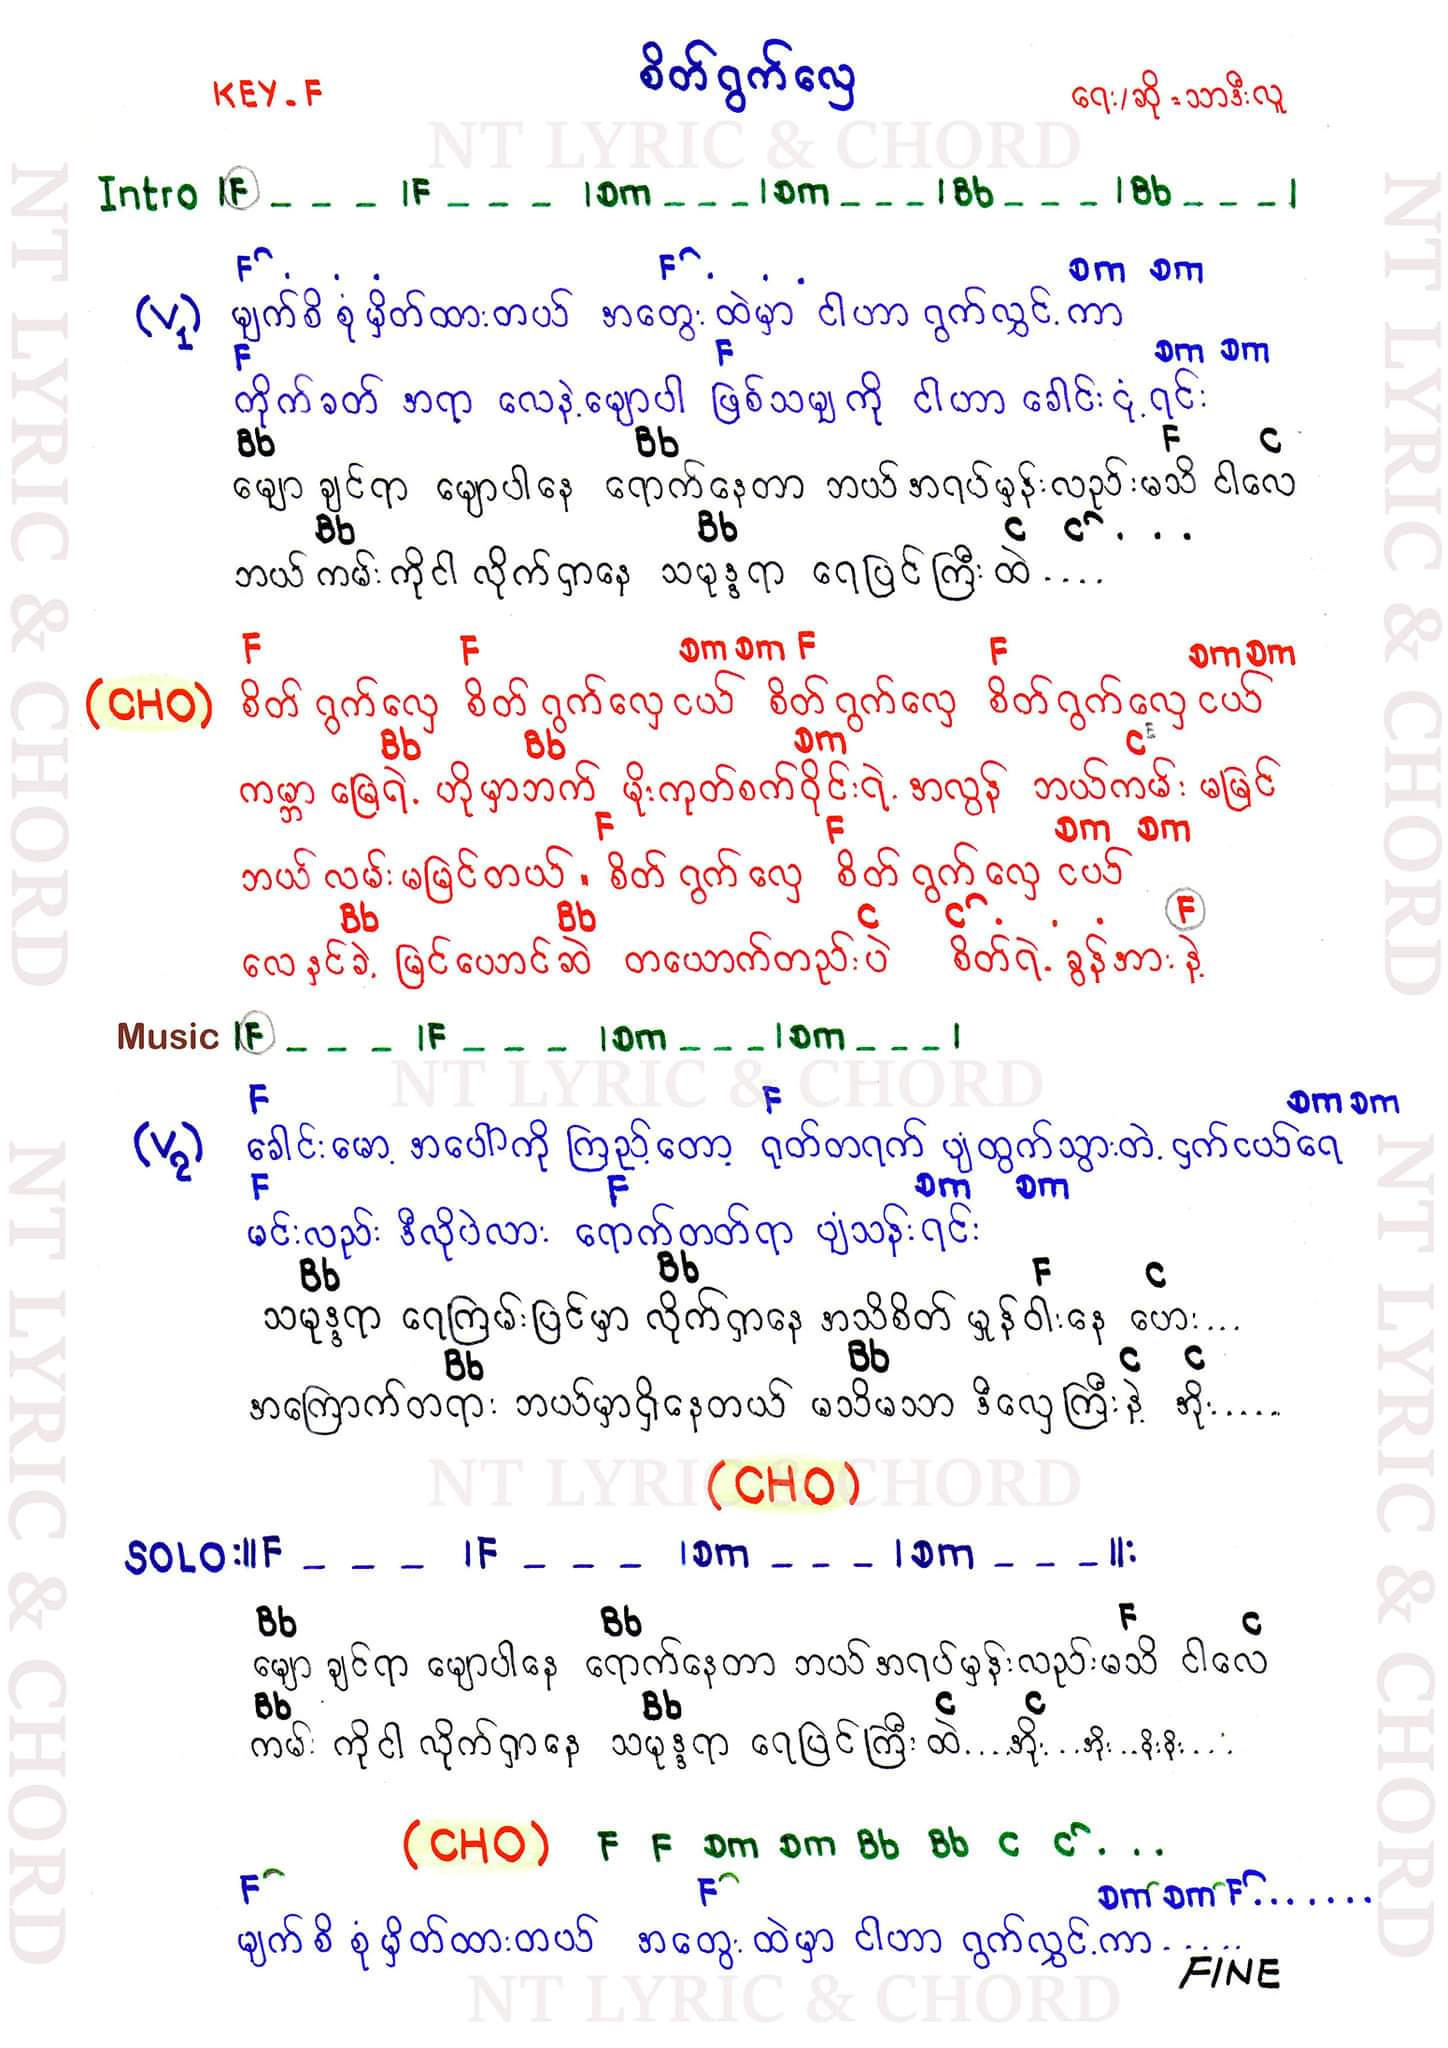 စိတ်ရွက်လှေ
KEY - F
ရေး/ဆို = သာဒီးလူ
NT LYRIC & CHORD
Intro |F _ _ _ |F _ _ _ |Dm _ _ _ |Dm _ _ _ |Bb _ _ _ |Bb _ _ _ |
F . . . F . . . Dm Dm
(V1) မျက်စိ စုံမှိတ်ထားတယ် အတွေးထဲမှာ ငါဟာ ရွက်လွှင့်ကာ
F F Dm Dm
တိုက်ခတ် အရာ လေနဲ့မျောပါ ဖြစ်သမျှကို ငါဟာ ခေါင်းငုံ့ရင်း
Bb Bb F C
မျော ချင်ရာ မျောပါနေ ရောက်နေတာ ဘယ်အရပ်မှန်းလည်းမသိ ငါလေ
Bb Bb C C . . .
ဘယ်ကမ်းကိုငါ လိုက်ရှာနေ သမုဒ္ဒရာ ရေပြင်ကြီးထဲ ....
F F Dm Dm F F Dm Dm
(CHO) စိတ်ရွက်လှေ စိတ်ရွက်လှေငယ် စိတ်ရွက်လှေ စိတ်ရွက်လှေငယ်
Bb Bb Dm C
ကမ္ဘာမြေရဲ့ ဟိုမှာဘက် မိုးကုတ်စက်ဝိုင်းရဲ့ အလွန် ဘယ်ကမ်း မမြင်
F F Dm Dm
ဘယ်လမ်းမမြင်တယ် ။ စိတ်ရွက်လှေ စိတ်ရွက်လှေငယ်
Bb Bb C C . . . F
လေနှင်ခဲ့ မြင်ယောင်ဆဲ တယောက်တည်းပဲ စိတ်ရဲ့ခွန်အားနဲ့
Music |F _ _ _ |F _ _ _ |Dm _ _ _ |Dm _ _ _ |
NT LYRIC & CHORD
F F Dm Dm
(V2) ခေါင်းမော့အပေါ်ကို ကြည့်တော့ ရုတ်တရက် ပျံထွက်သွားတဲ့ ငှက်ငယ်ရေ
F F Dm Dm
မင်းလည်း ဒီလိုပဲလား ရောက်တတ်ရာ ပျံသန်းရင်း
Bb Bb F C
သမုဒ္ဒရာ ရေကြမ်းပြင်မှာ လိုက်ရှာနေ အသိစိတ် မှုန်ဝါးနေ ဟေး...
Bb Bb C C
အကြောက်တရား ဘယ်မှာရှိနေတယ် မသိမသာ ဒီလှေကြီးနဲ့ အိုး......
(CHO)
NT LYRIC & CHORD
SOLO :||F _ _ _ |F _ _ _ |Dm _ _ _ |Dm _ _ _ ||:
Bb Bb F C
မျော ချင်ရာ မျောပါနေ ရောက်နေတာ ဘယ်အရပ်မှန်းလည်းမသိ ငါလေ
Bb Bb C C
ကမ်း ကိုငါ လိုက်ရှာနေ သမုဒ္ဒရာ ရေပြင်ကြီးထဲ....အိုး...အိုး..
(CHO) F F Dm Dm Bb Bb C C . . .
F F Dm Dm F.......
မျက်စိ စုံမှိတ်ထားတယ် အတွေးထဲမှာ ငါဟာ ရွက်လွှင့်ကာ......
FINE
NT LYRIC & CHORD
NT LYRIC & CHORD
NT LYRIC & CHORD
NT LYRIC & CHORD
NT LYRIC & CHORD